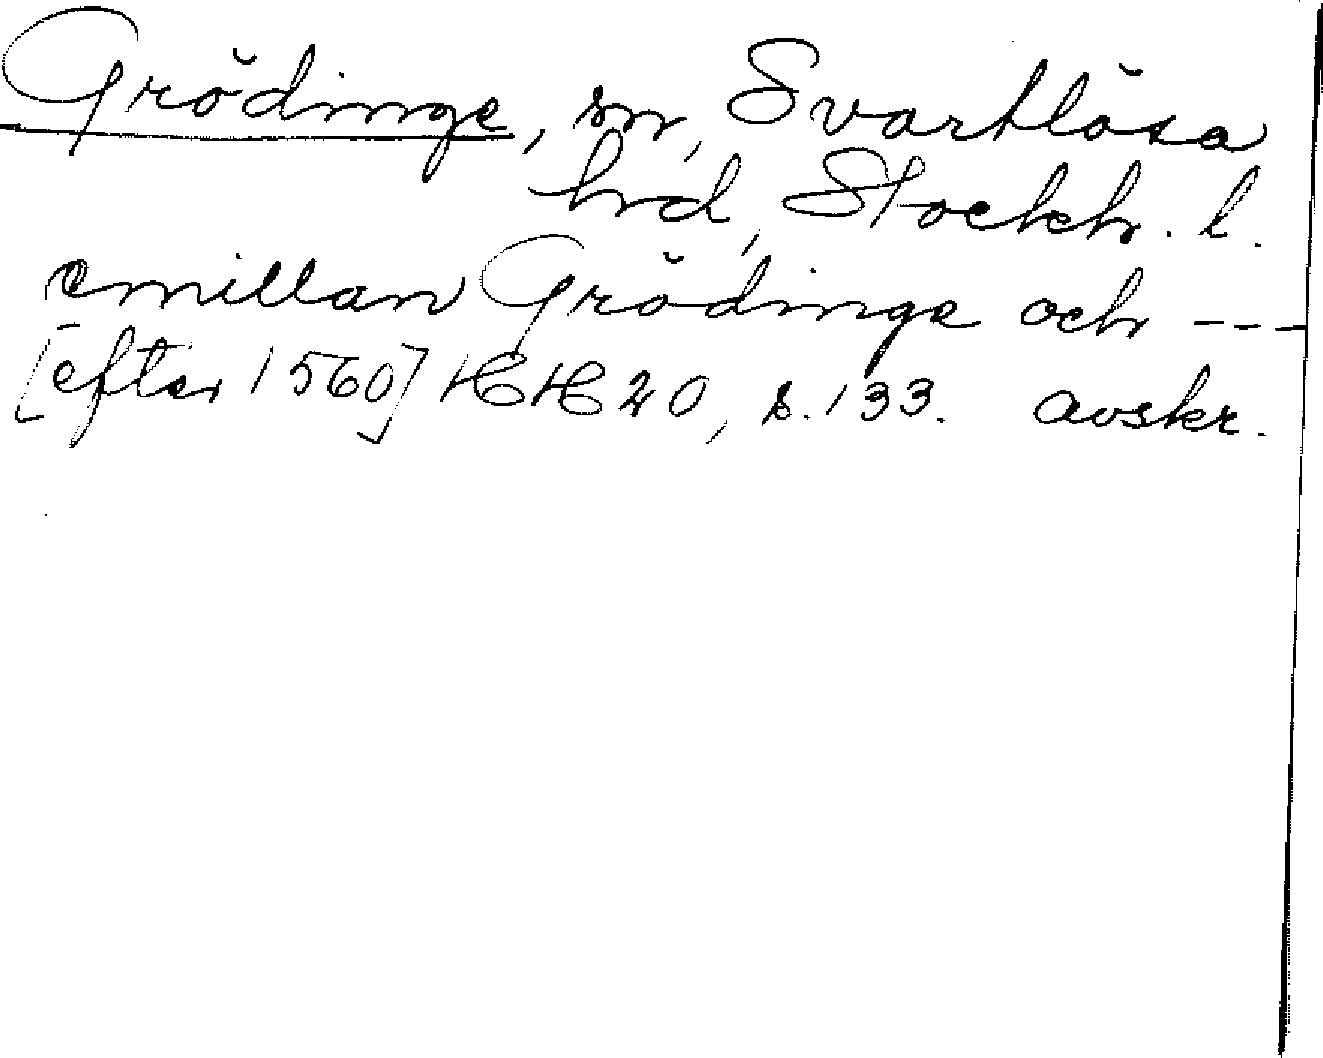 Grödinge, sn, Svartlösa
hrd, Stockh. l.
emillan Grödinge och ---
[efter 1560] HH 20, s. 133. avskr.